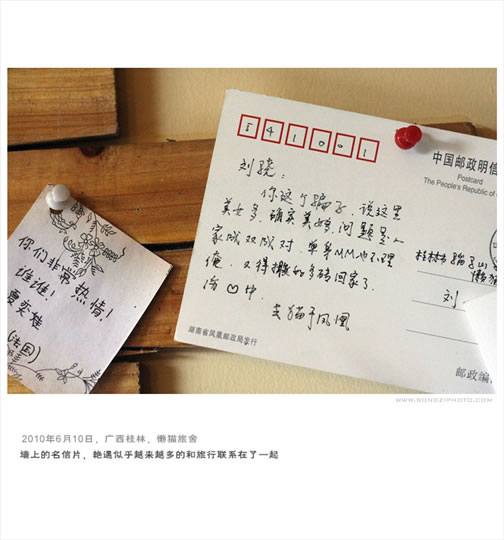 541001
中国邮政明信
Postcard
The People's Republic of
刘骁:
你这个骗子,说这里
美女多,确实美女多,问题是人
家成双成对,单身MM也不理
俺,又得搬的多砖回家了.
治♡中.
玄猫于凤凰
桂林市骝子山
懒猫
刘
湖南省凤凰邮政局发行
邮政编
你们非常热情!
谁谁!
夏奕雄
(法国)
WWW.SONGZIPHOTO.COM
2010年6月10日,广西桂林,懒猫旅舍
墙上的名信片,艳遇似乎越来越多的和旅行联系在了一起